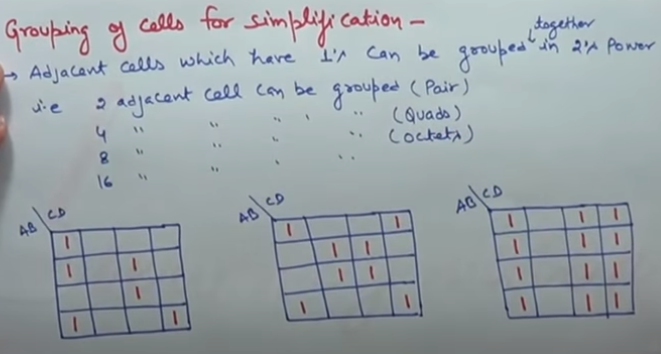 Grouping of cells for simplification -
→ Adjacent cells which have 1's can be grouped together in 2's Power
i.e 2 adjacent cell can be grouped (Pair)
4 " " " " " (Quads)
8 " " " " (Octets)
16 " " " "
AB CD AB CD AB CD
1 1 1 1 1 1
1 1 1 1 1 1 1
1 1 1 1 1 1
1 1 1 1 1 1 1